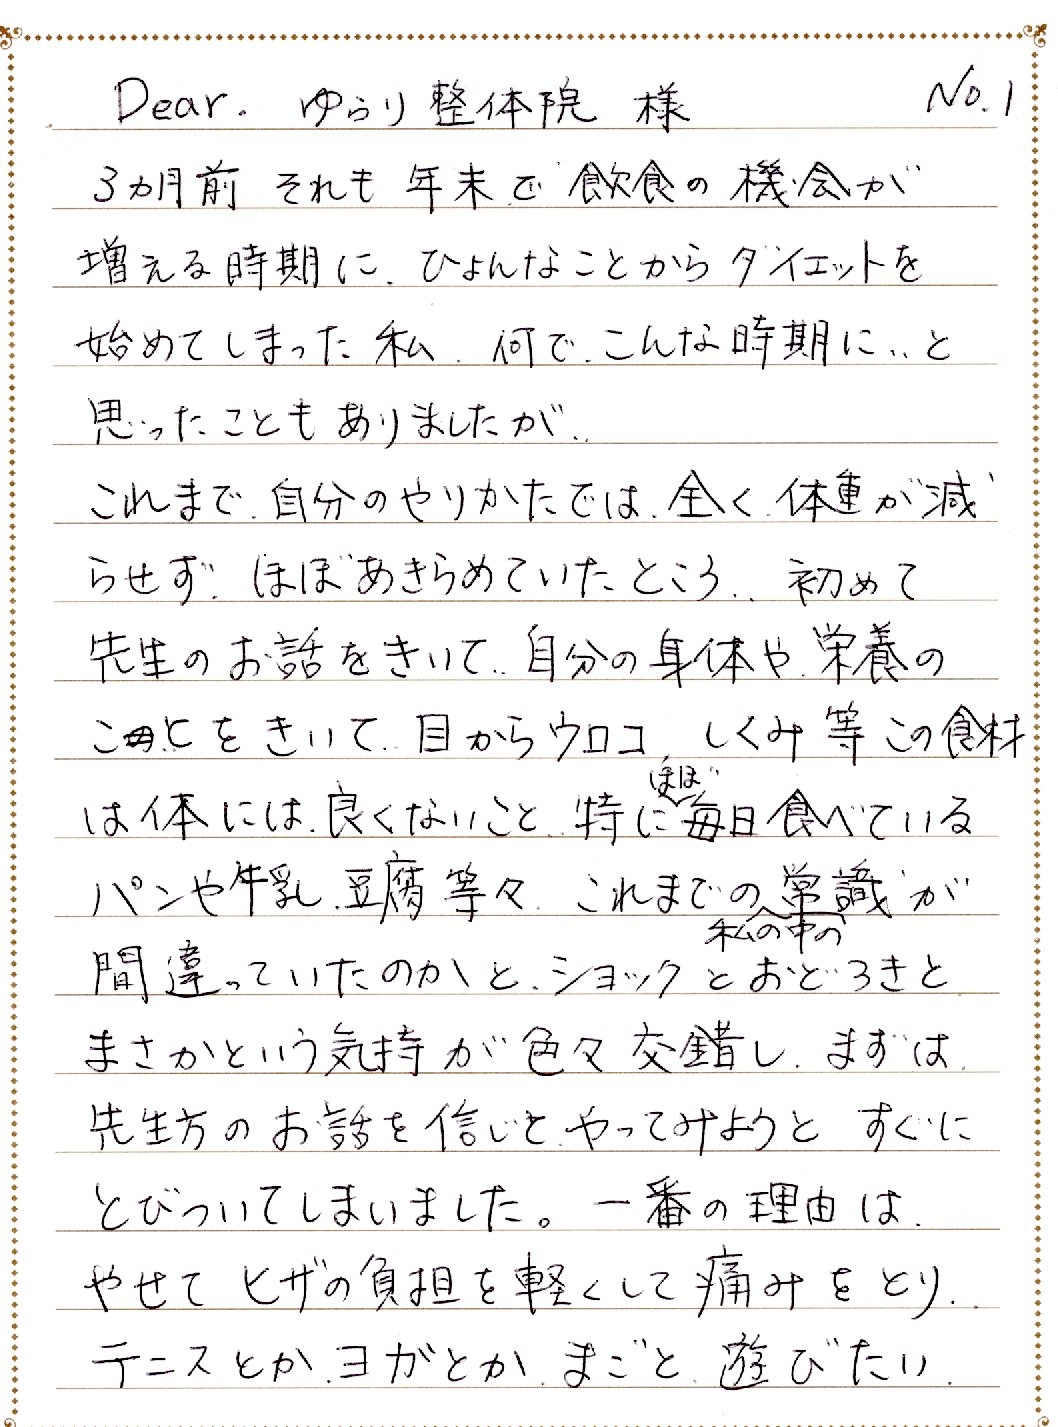 Dear. ゆらり整体院 様
No.1
3カ月前 それも 年末で 飲食の 機会が
増える時期に、ひょんなことからダイエットを
始めてしまった 私、何で、こんな時期に‥と
思ったことも ありましたが‥
これまで、自分のやりかたでは、全く、体重が減
らせず、ほぼあきらめていたところ‥ 初めて
先生のお話をきいて‥自分の身体や、栄養の
ことをきいて‥目からウロコ、しくみ 等 この食材
は体には、良くないこと、特にほぼ毎日食べている
パンや牛乳、豆腐等々、これまでの私の中の常識が
間違っていたのかと、ショックとおどろきと
まさかという気持が色々交錯し、まずは、
先生方のお話を信じと、やってみようと すぐに
とびついてしまいました。一番の理由は、
やせて ヒザの負担を軽くして痛みをとり‥
テニスとか、ヨガとか、まごと、遊びたい、